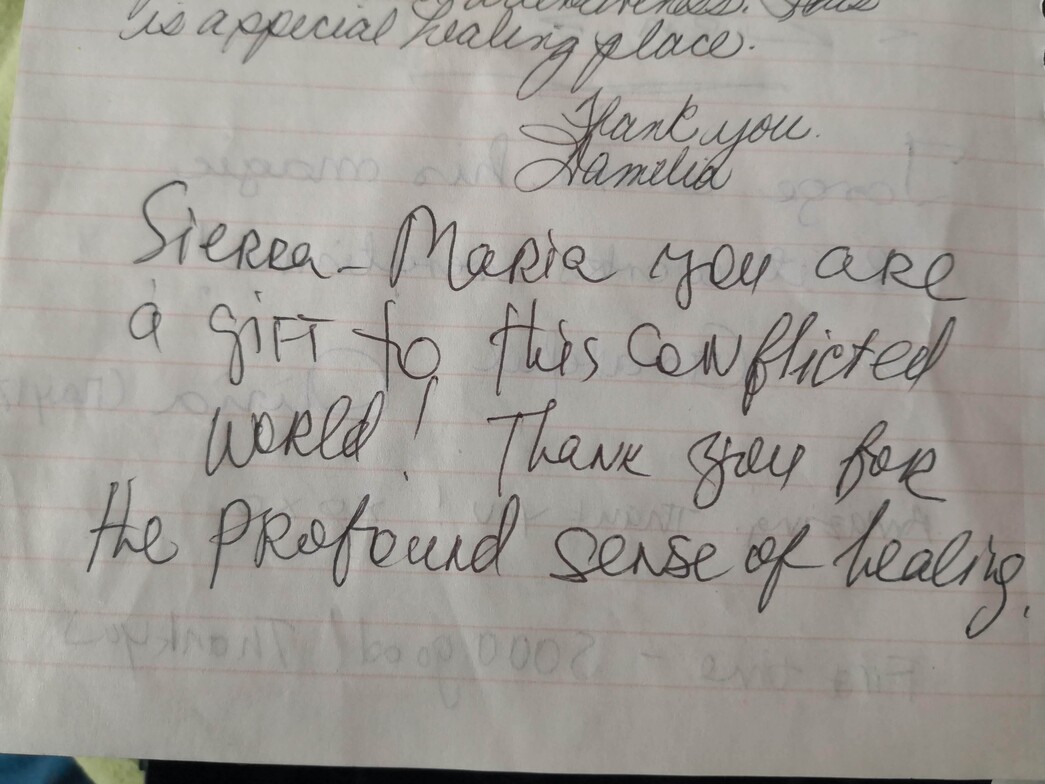 is a special healing place.
Thank you.
Sierra-Maria you are
a gift to this conflicted
world! Thank you for
the profound sense of healing.